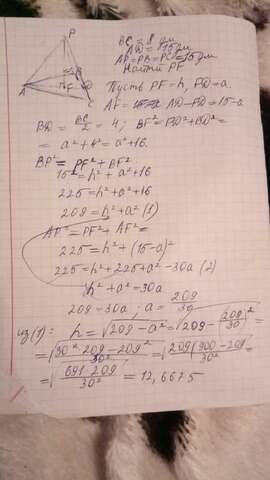 P
BC = 8 дм
AD = 15 дм
AP=PB=PC=15 дм
Найти PF
A
F
B
D
C
Пусть PF=h, FD=a.
AF = AD-FD=15-a
BD = BC/2 = 4; BF² = FD²+BD² =
= a²+4² = a²+16.
BP² = PF²+BF²
15² = h²+a²+16
225 = h²+a²+16
209 = h²+a² (1)
AP² = PF²+AF² =
225 = h²+(15-a)²
225 = h²+225+a²-30a (2)
h²+a²-30a
209-30a; a = 209/30
из (1): h = √209-a² = √209-(209/30)² =
= √30²·209-209²/30² = √209(900-209)/30² =
= √691·209/30² = 12,6675